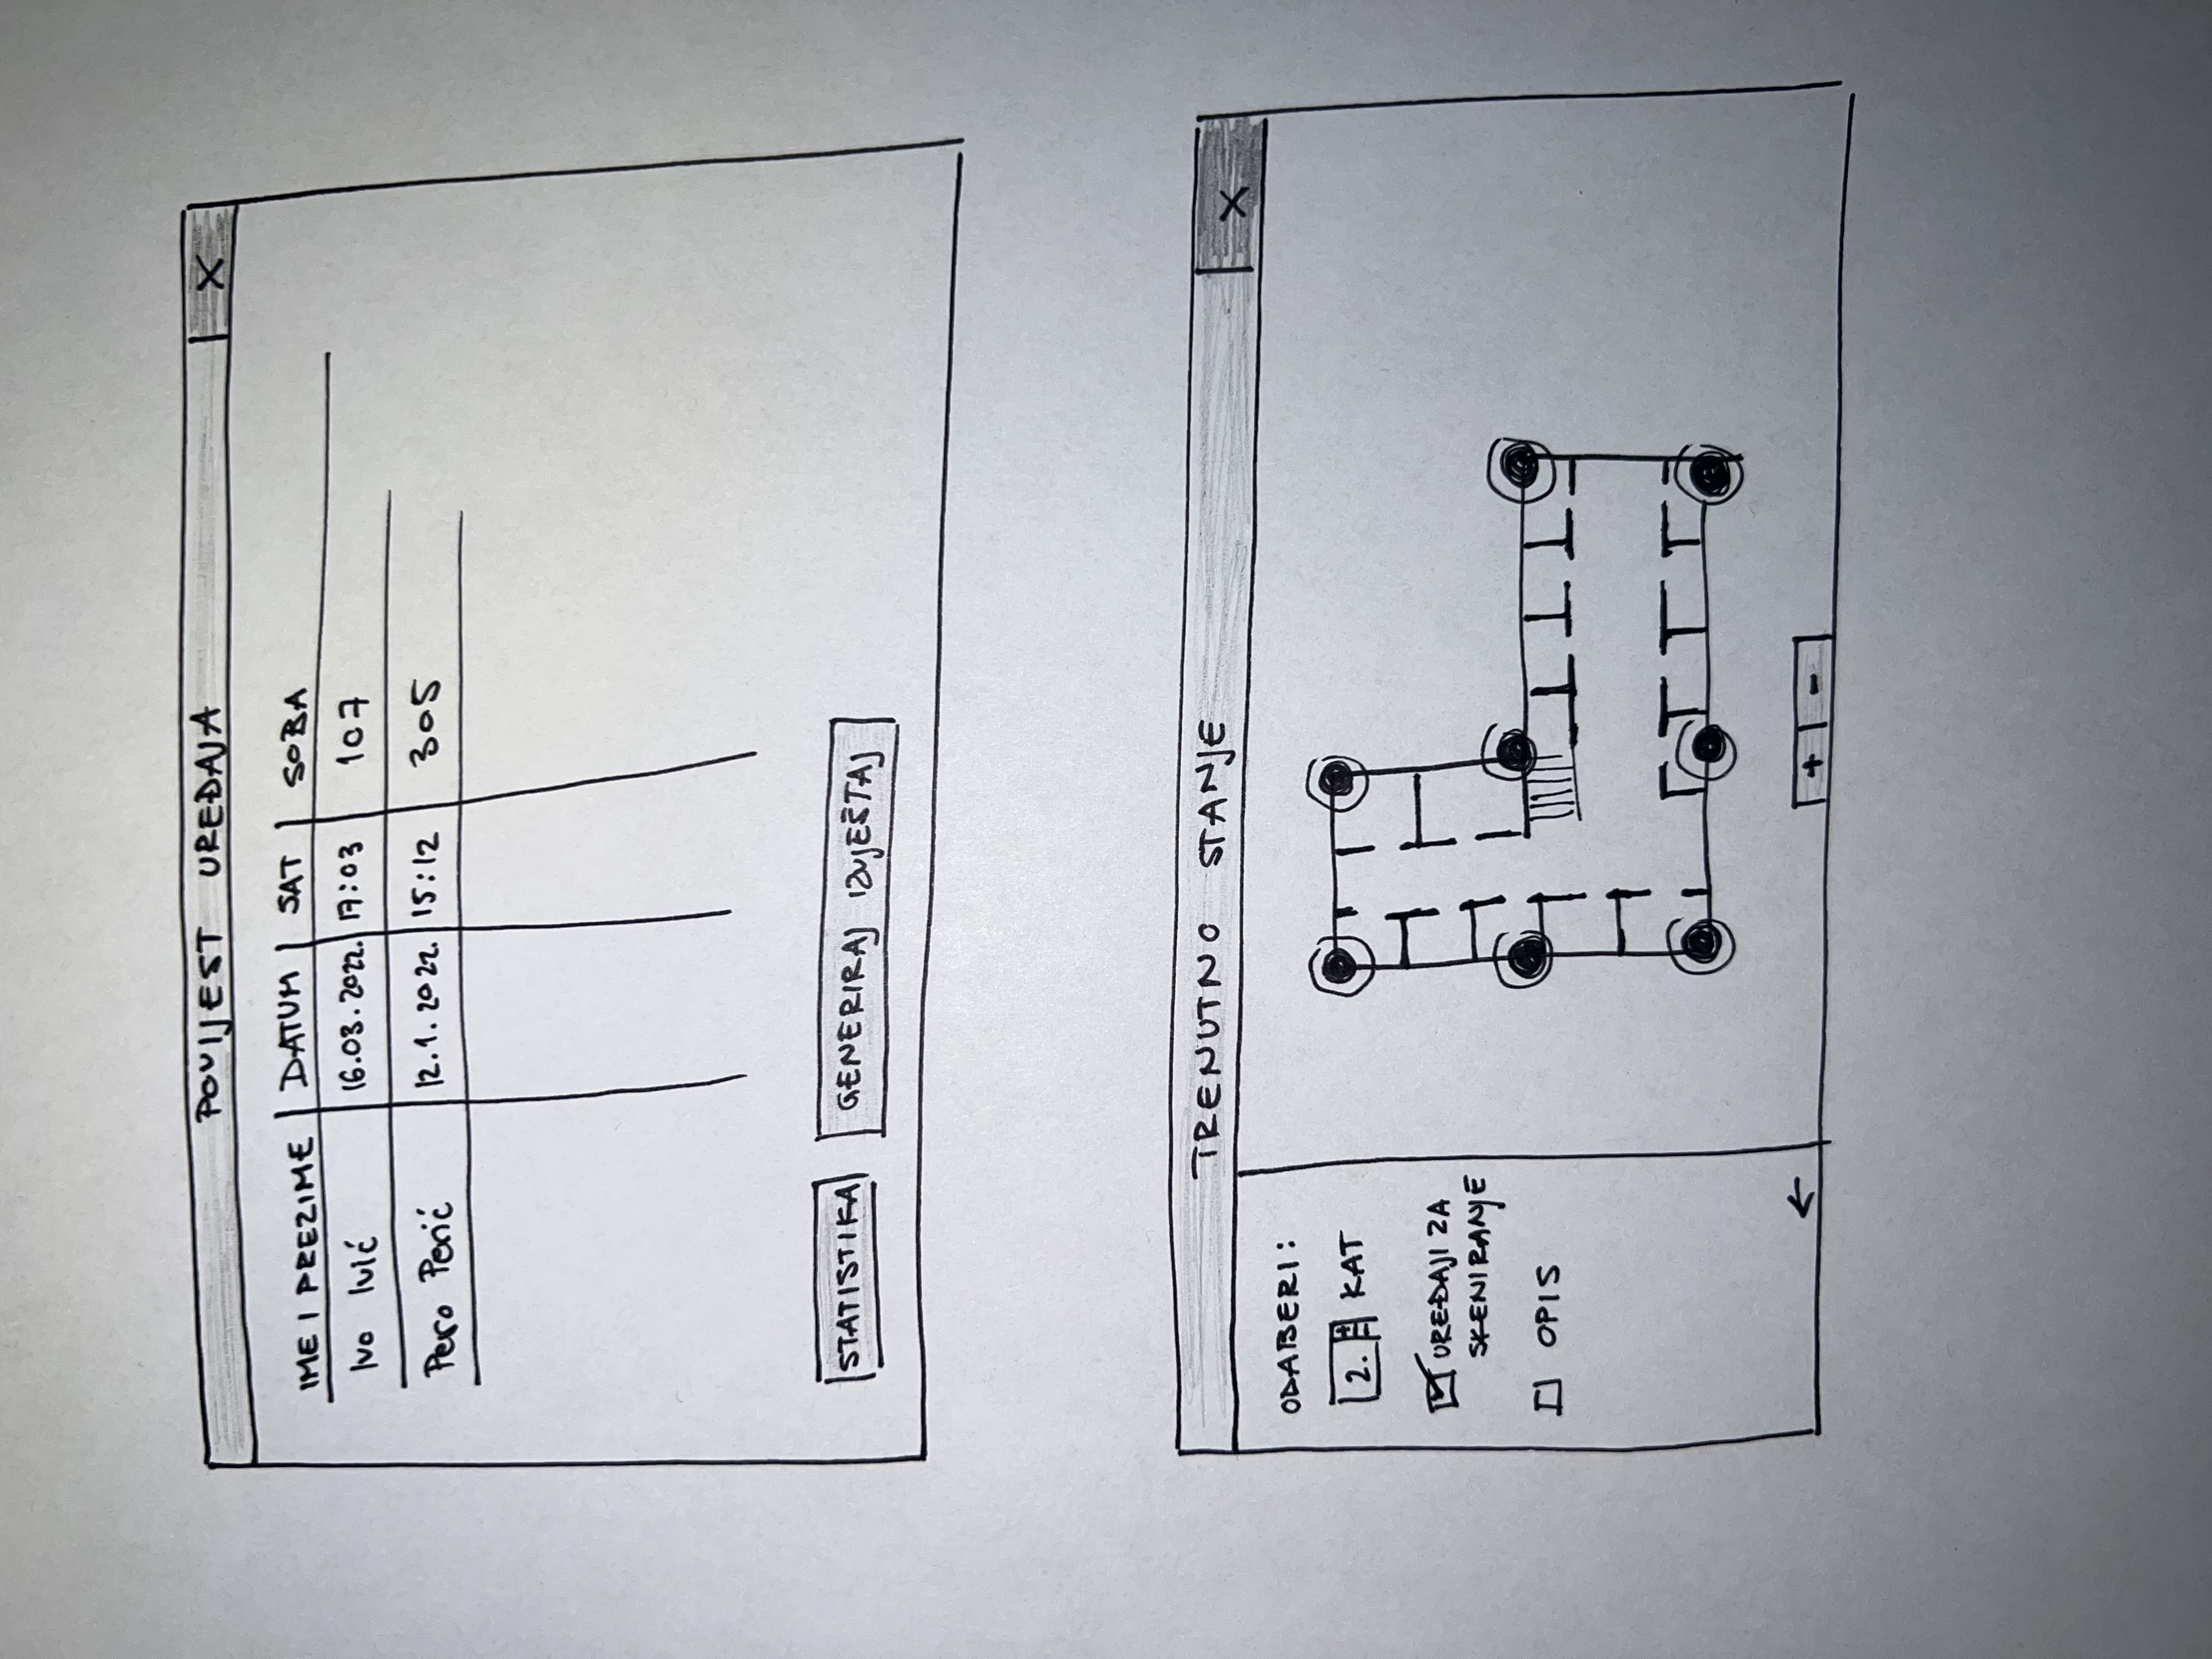 POVIJEST UREĐAJA X
IME I PREZIME DATUM SAT SOBA
Ivo Ivić 16.03.2022. 17:03 107
Pero Perić 12.1.2022. 15:12 305
STATISTIKA GENERIRAJ IZVJEŠTAJ
TRENUTNO STANJE X
ODABERI:
2. KAT
UREĐAJI ZA
SKENIRANJE
OPIS
← + -